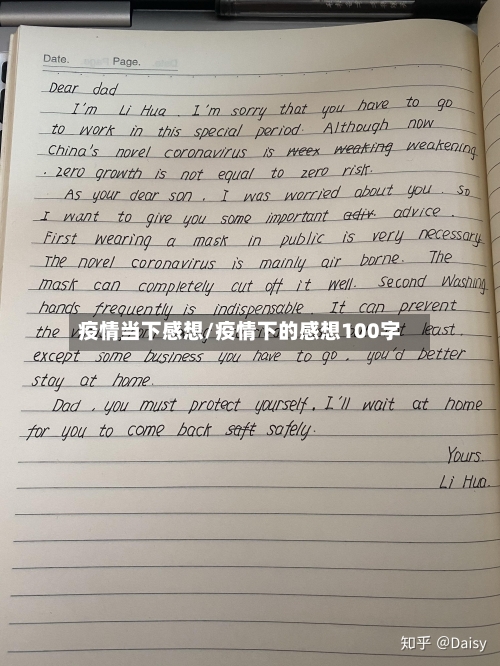 Date. Page.
Dear dad
I'm Li Hua. I'm sorry that you have to go
to work in this special period. Although now
China's novel coronavirus is weex weaking weakening
. zero growth is not equal to zero risk.
As your dear son, I was worried about you. So
I want to give you some important adiv. advice.
First wearing a mask in public is very necessary
The novel coronavirus is mainly air borne. The
mask can completely cut off it well. Second Washing
hands frequently is indispensable. It can prevent
the
疫情当下感想/疫情下的感想100字
least.
except some business you have to go. you'd better
stay at home.
Dad, you must protect yourself. I'll wait at home
for you to come back saft safely.
Yours.
Li Hua.
知乎 @Daisy